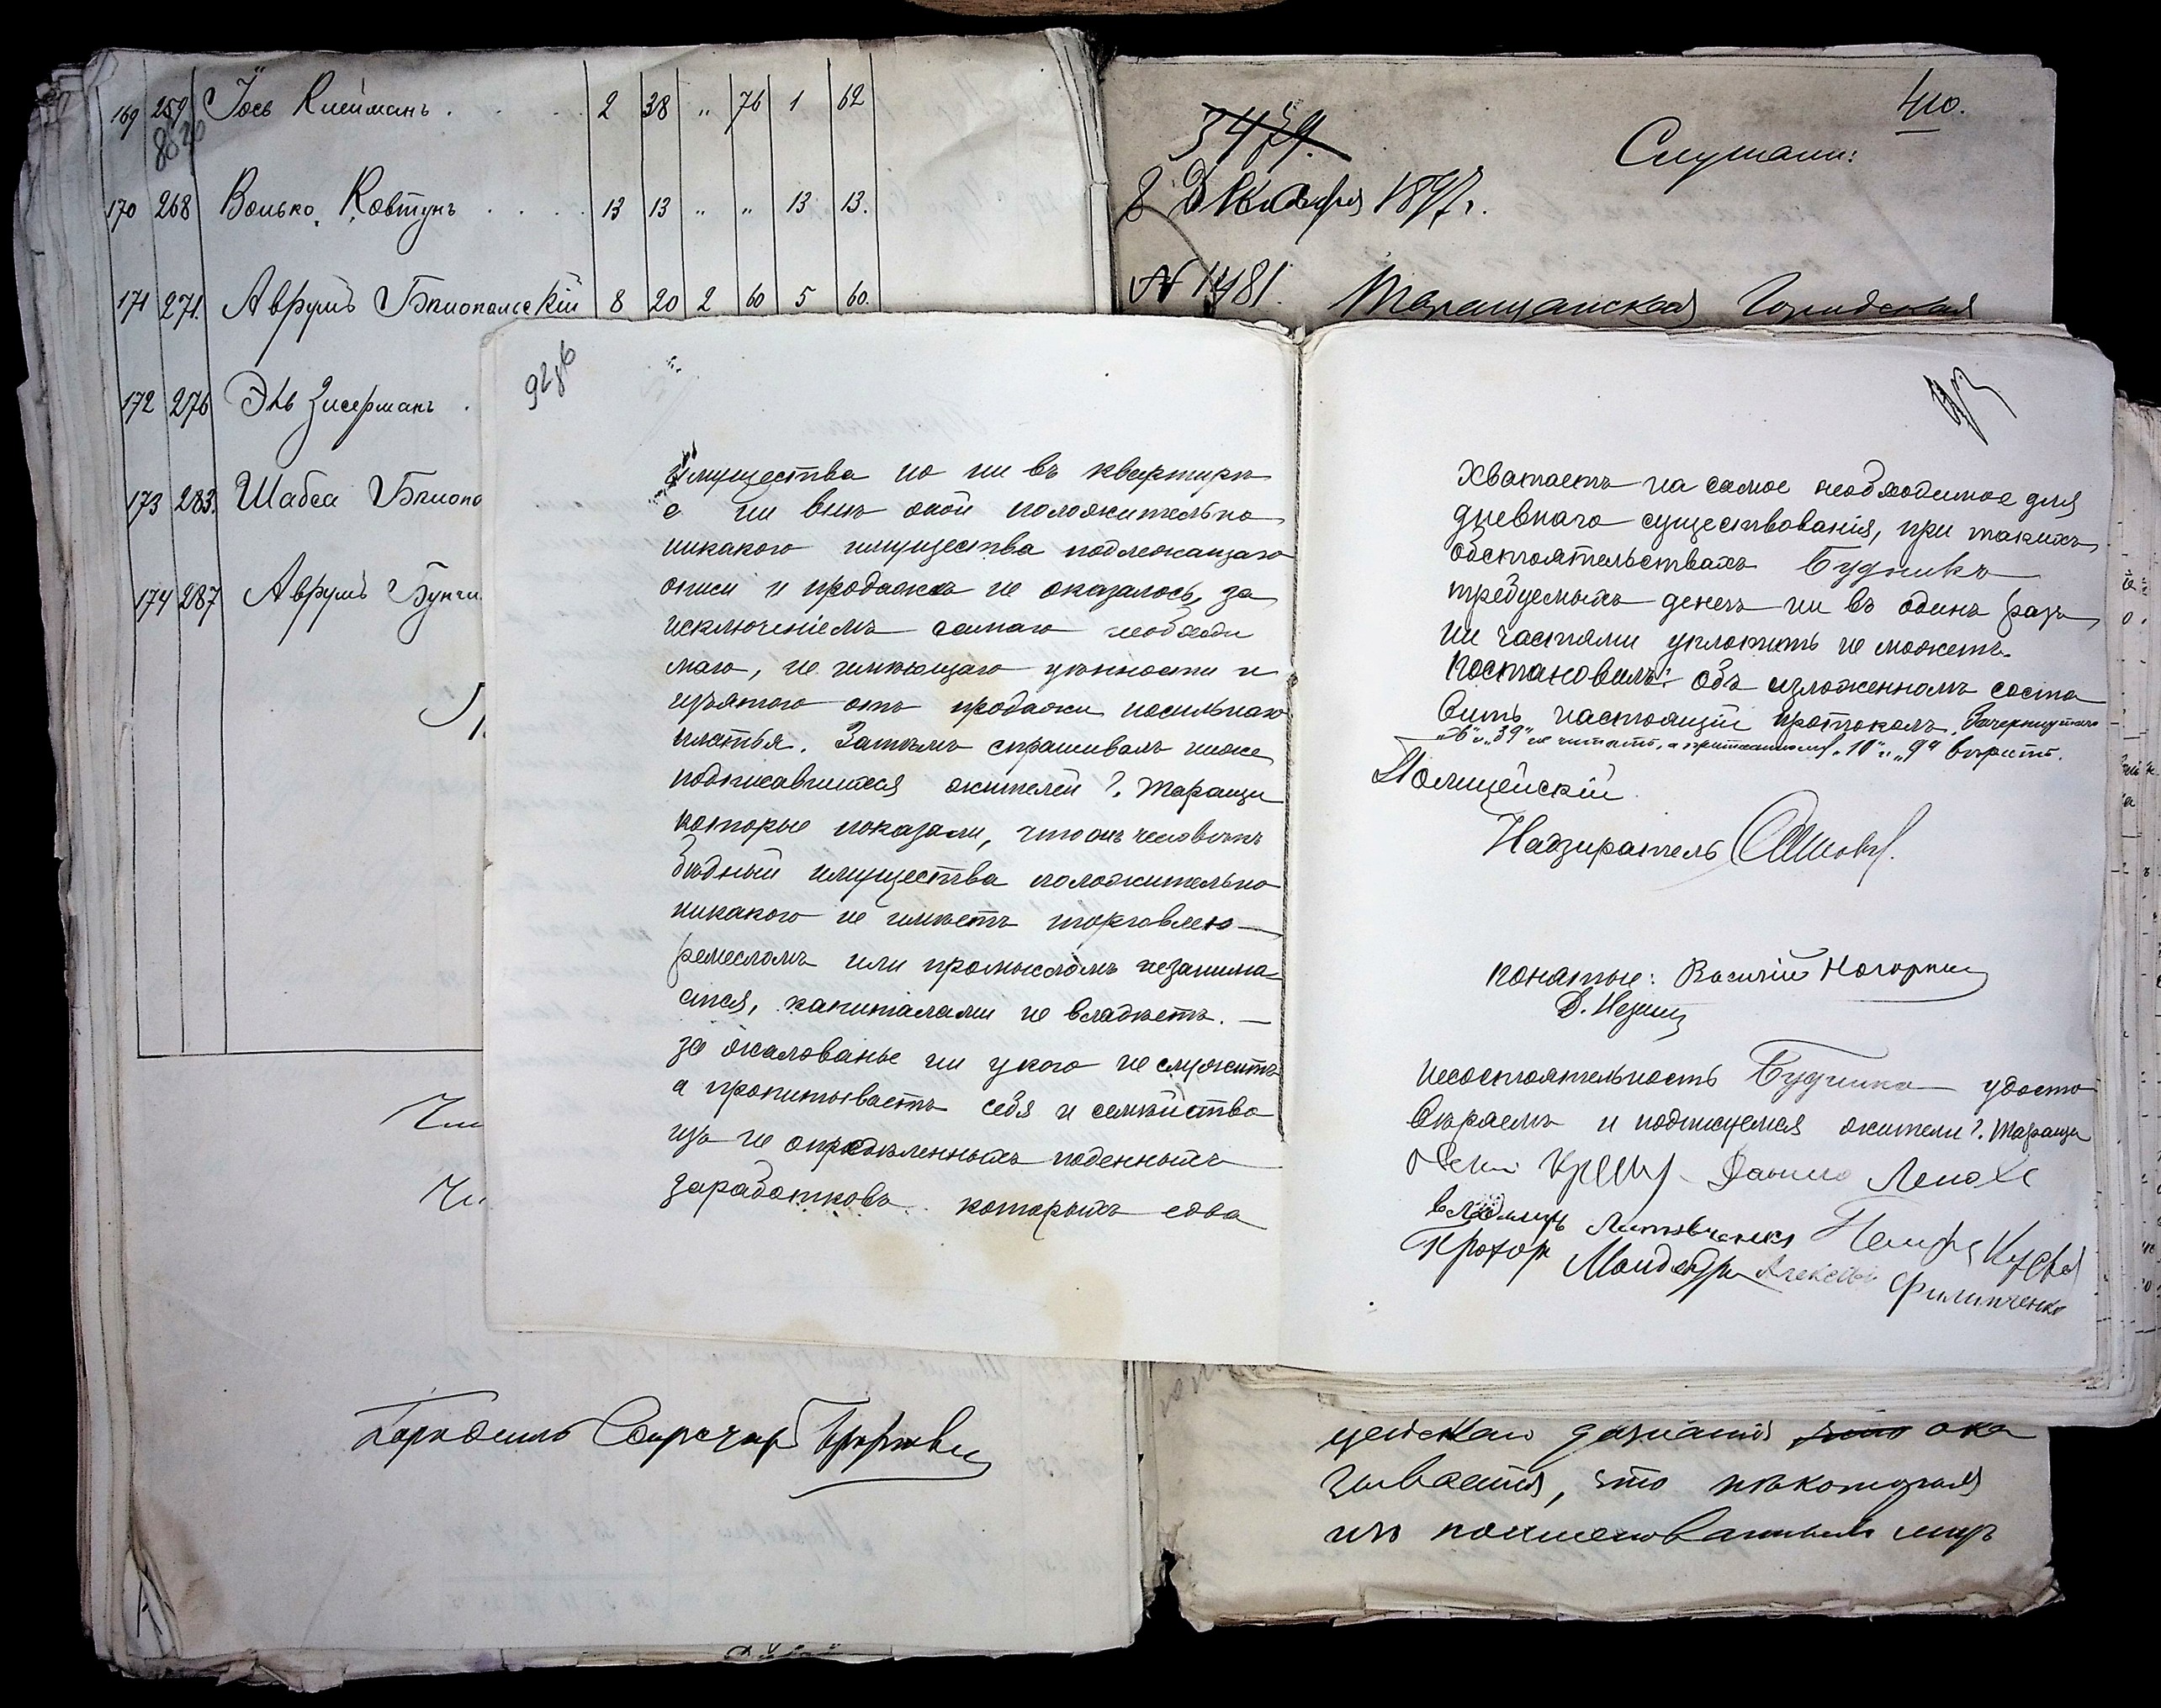 169 259 Іось Клейманъ . . . 2 38 " 76 1 62
170 268 Волько Ковтунъ . . . . 13 13 " " 13 13.
171 271. Аврумъ Бялопольскій 8 20 2 60 5 60.
172 276 Эль Зисерманъ .
173 283. Шабса Бялопо
174 287 Аврумъ Бунчи
410.
Слушали:
8 Декабря 1897 г.
Таращанская Городская
92 об
имущества но ни въ квартирѣ
е ни внѣ оной положительно
никакого имущества подлежащаго
описи и продажѣ не оказалось, за
исключеніемъ самаго необходи
маго, не имѣющаго цѣнности и
изъятого отъ продажи носильнаго
платья. Затѣмъ спрашивалъ ниже
подписавшихся жителей г. Таращи
которые показали, что онъ человѣкъ
бѣдный имущества положительно
никакого не имѣетъ торговлею
ремесломъ или промысломъ незанима
ется, капиталами не владѣетъ. —
за жалованье ни у кого не служитъ
а пропитываетъ себя и семейство
изъ не опредѣленныхъ поденныхъ
заработковъ которыхъ едва
93
хватаетъ на самое необходимое для
дневнаго существованія, при такихъ
обстоятельствахъ Будникъ
требуемыхъ денегъ ни въ одинъ разъ
ни частями уплотить не можетъ.
Постановилъ: объ изложенномъ соста
вить настоящій протоколъ. Зачеркнутое
"6" и "39" не читать, а "10" и "99" вѣрить.
Полицейскій
Надзиратель
понятые: Василій Нагорный
несостоятельность Будника удосто
вѣряемъ и подписуемся жители г. Таращи
Данило
Литовченко
Прохор Алексѣй
Филипченко
дознанія что ока
зывается, что нѣкоторыя
изъ поименованныхъ лицъ